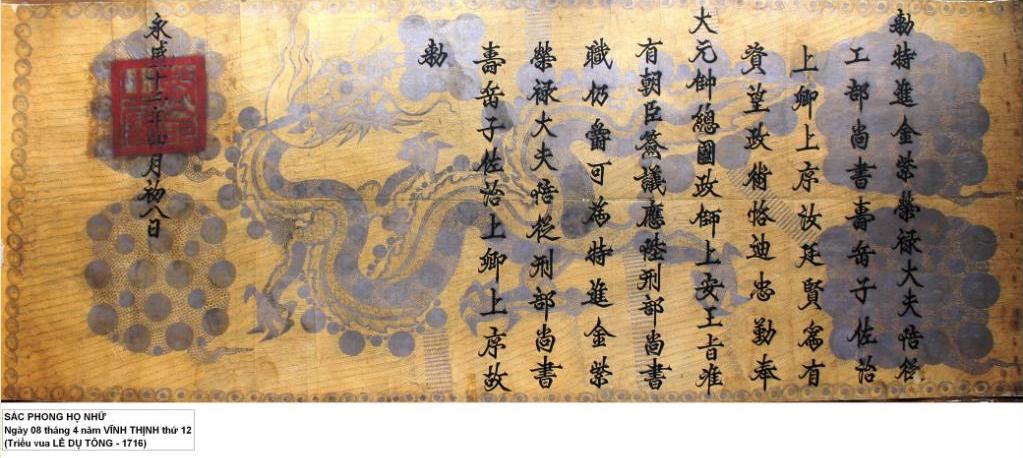 勅特進金紫榮禄大夫陪從
工部尚書壽岳子佐治
上卿上序汝廷賢為有
資望政術恪迪忠勤奉
大元帥總國政師上安王旨准
有朝臣僉議應陞刑部尚書
職仍爵可為特進金紫
榮禄大夫陪從刑部尚書
壽岳子佐治上卿上序故
勅
永盛十二年四月初八日
SẮC PHONG HỌ NHỮ
Ngày 08 tháng 4 năm VĨNH THỊNH thứ 12
(Triều vua LÊ DỤ TÔNG - 1716)